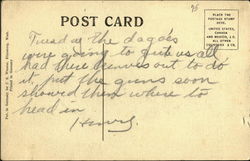 95
POST CARD
PLACE
THE POSTAGE
STAMP HERE
UNITED STATES,
CANADA
AND MEXICO, 1 C.
ALL OTHER
COUNTRIES
2 C.
Tuesday the dagoes
were going to give us all
had there knives out to do
it but the guns soon
showed them where to
head in
Henry